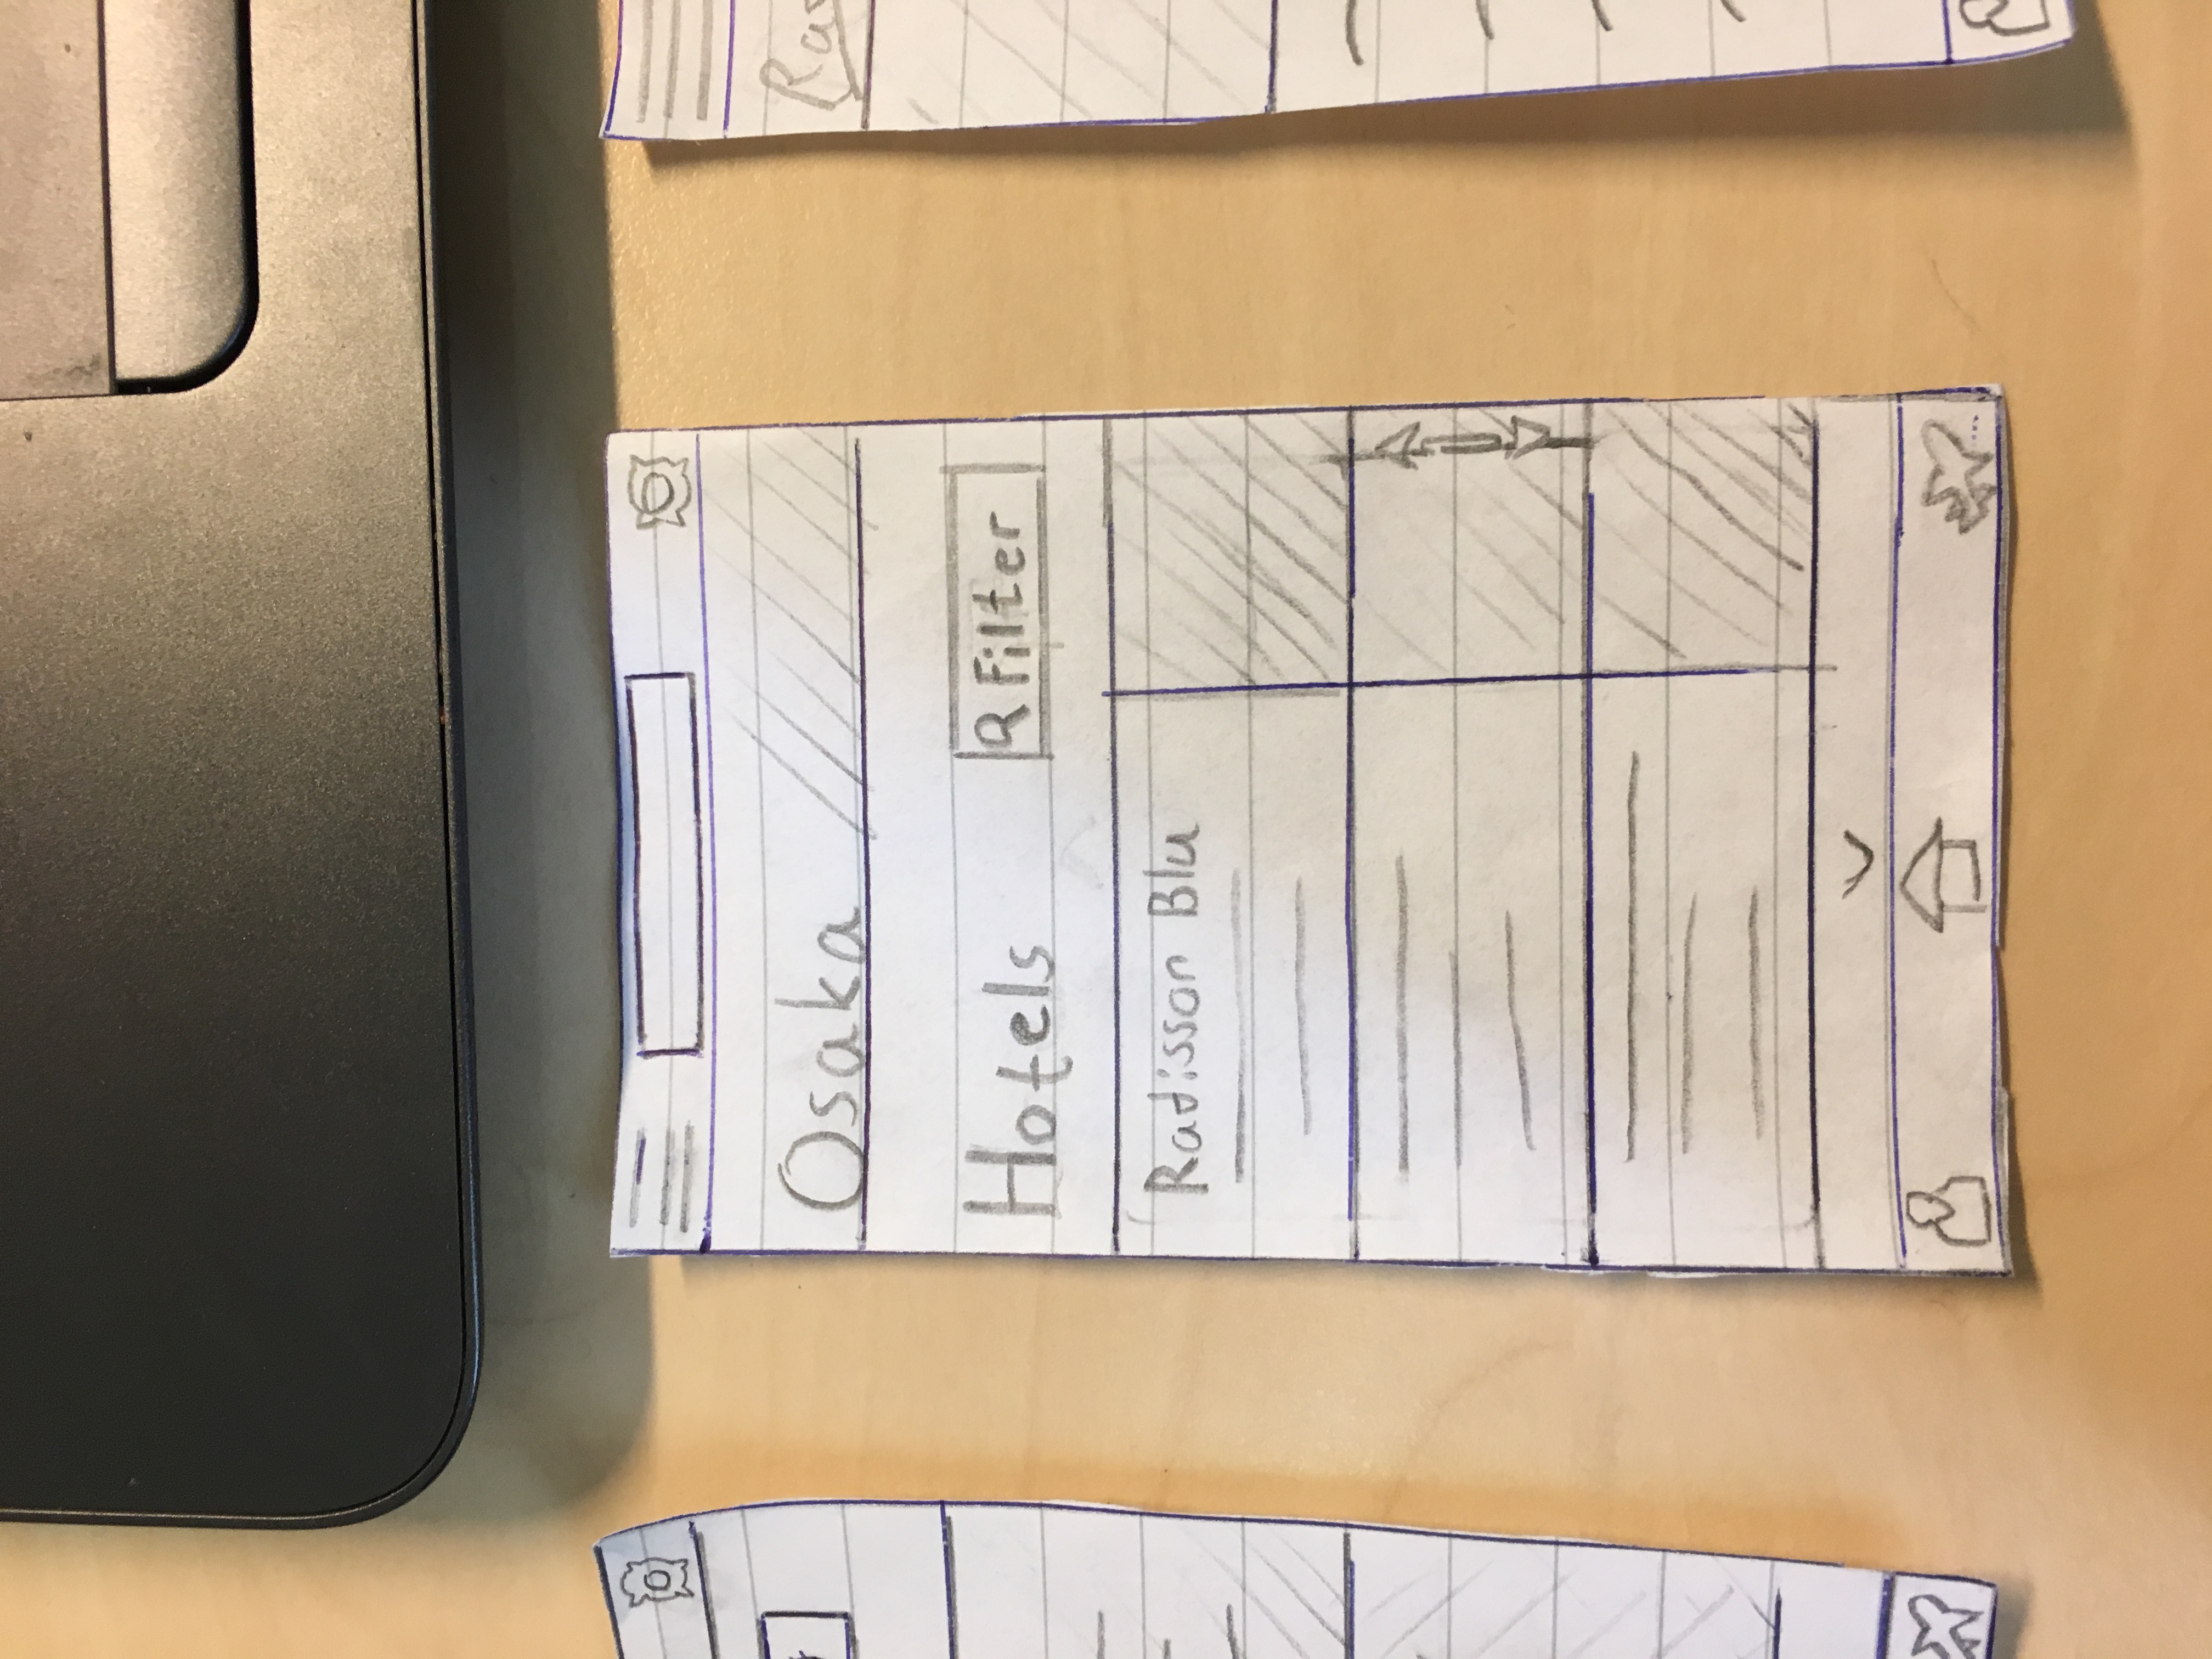 Osaka
Hotels
Filter
Radisson Blu